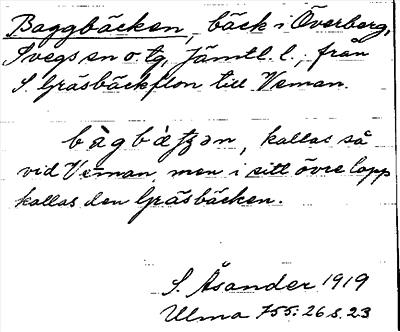 Baggbäcken, bäck i Överberg,
Svegs sn o. tg, Jämtl. l., från
S. Gräsbäckflon till Veman.
kallas så
vid Veman, men i sitt övre lopp
kallas den Gräsbäcken.
S. Åsander 1919
Ulma 755:26 s. 23